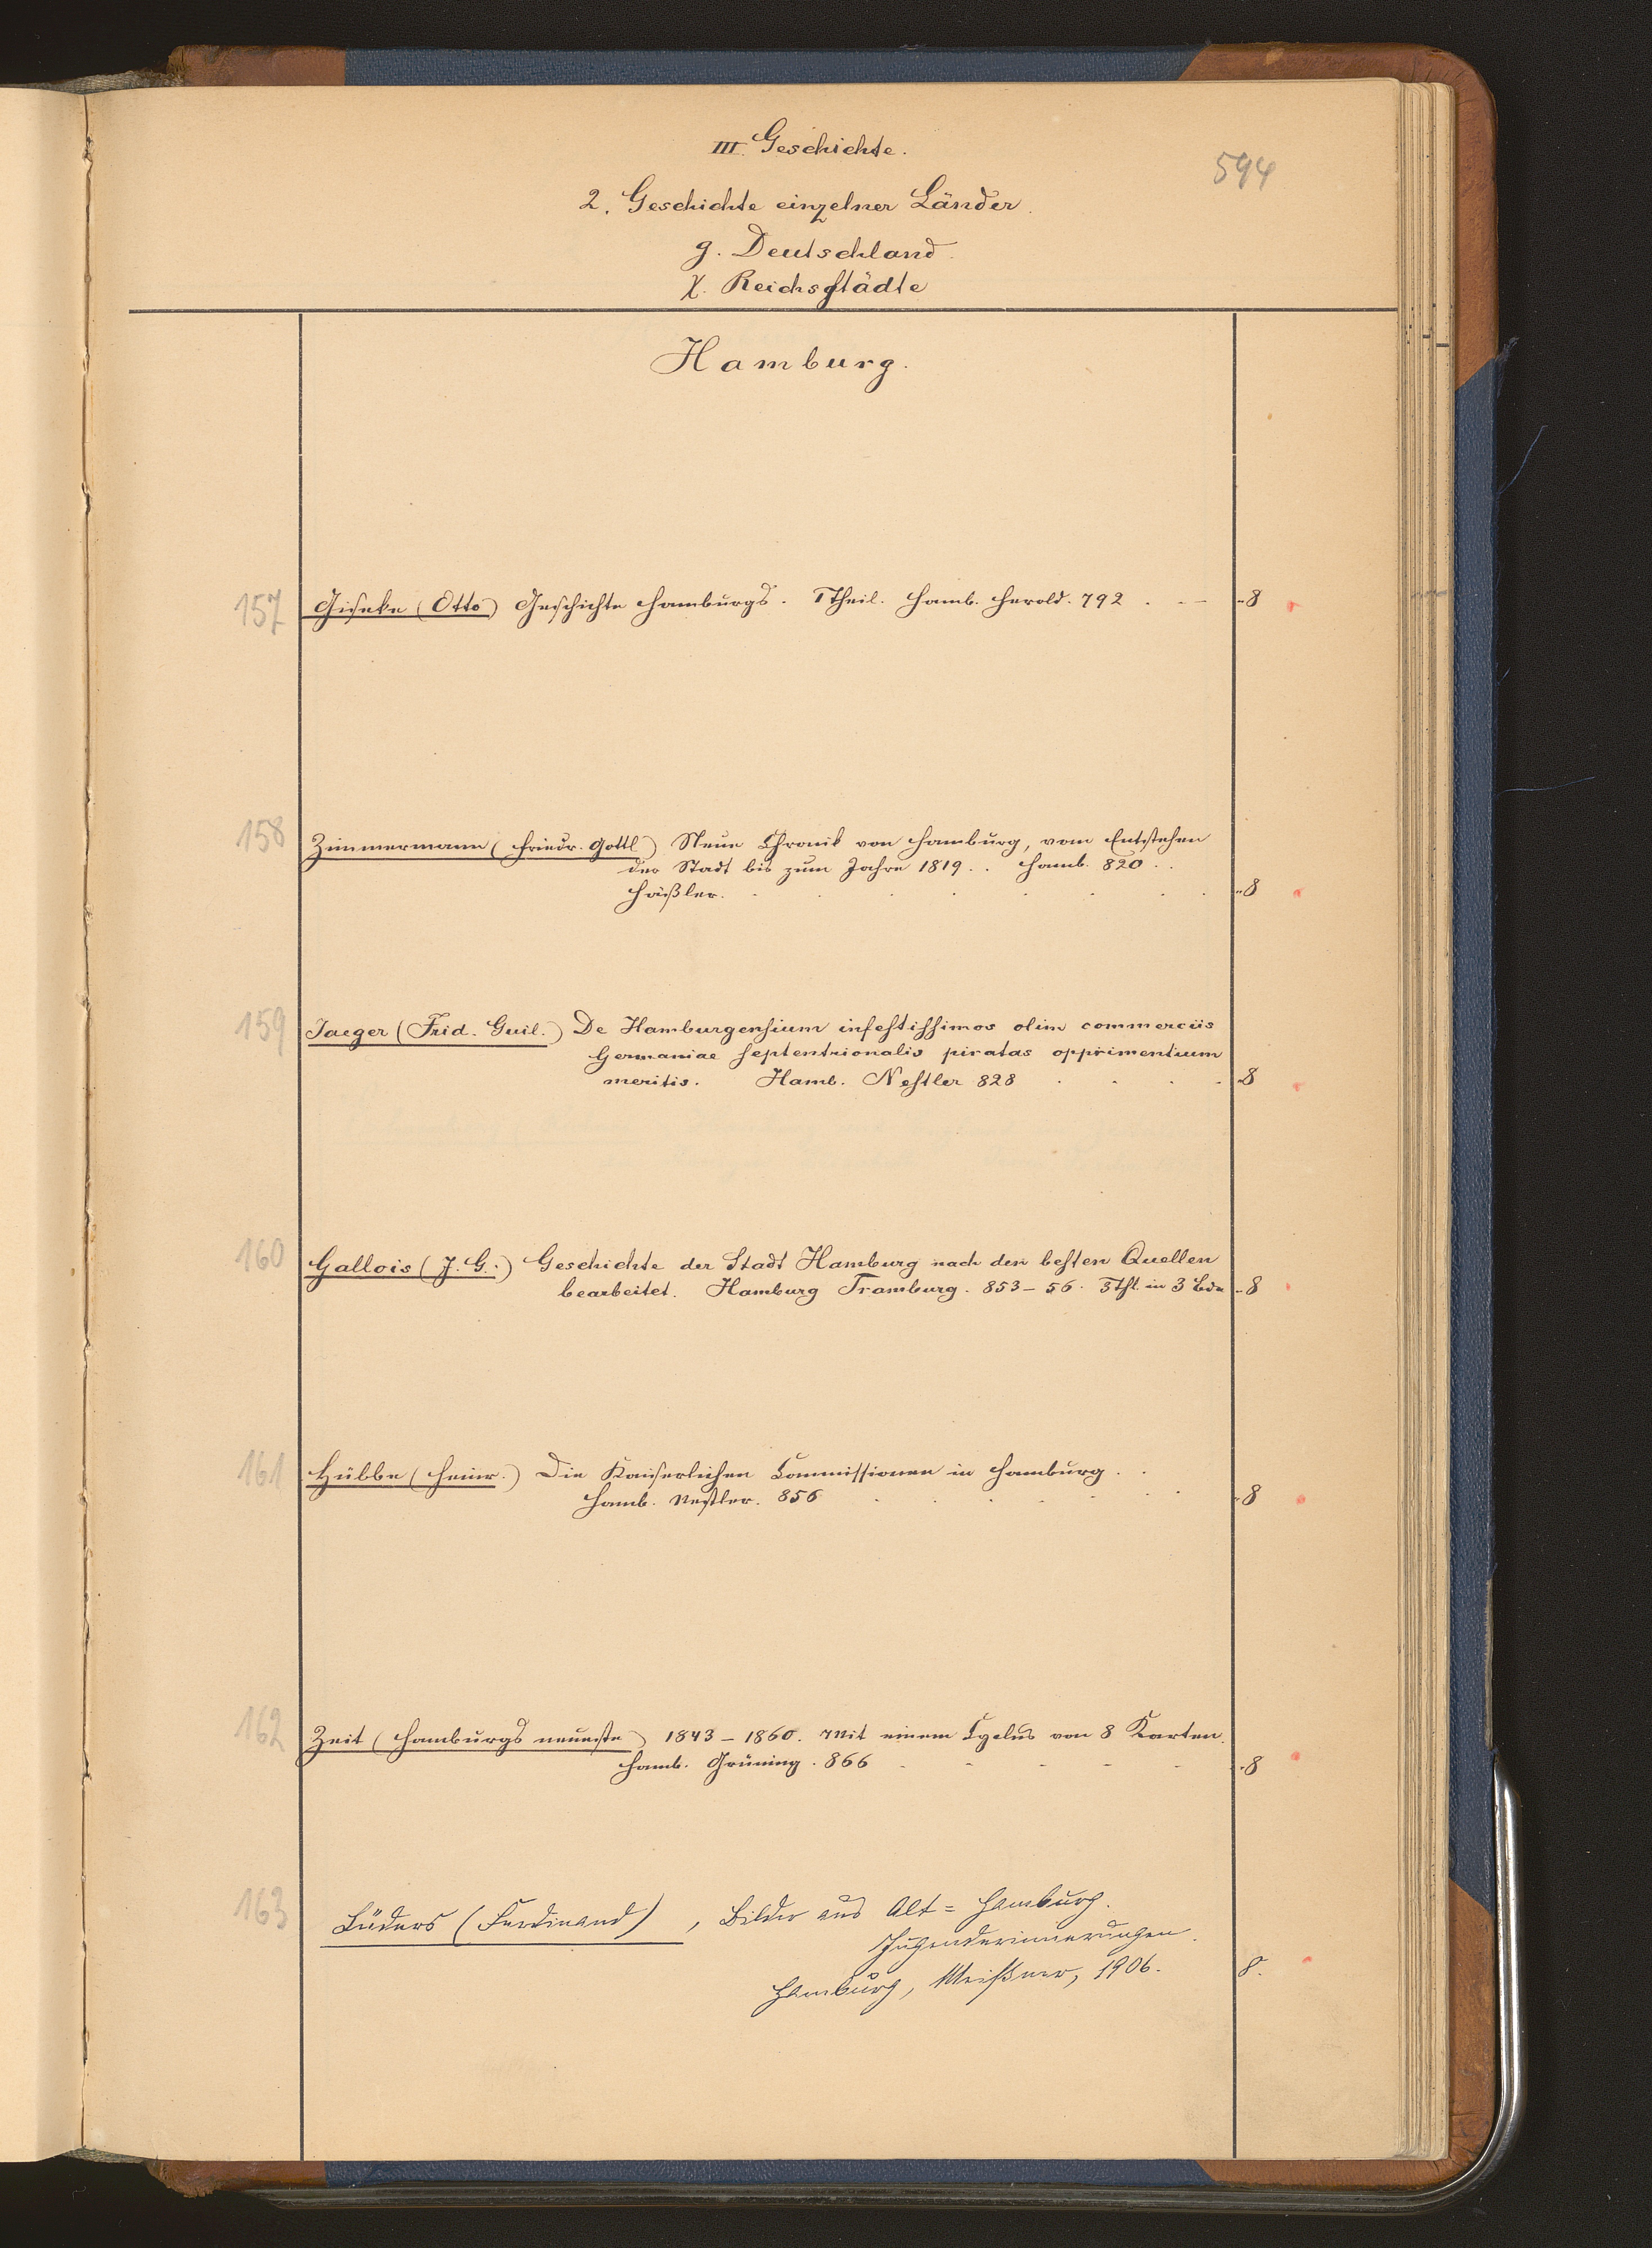 III. Geschichte.
594
2. Geschichte einzelner Länder.
g. Deutschland.
χ. Reichsstädte
Hamburg.
157 Giseke (Otto) Geschichte Hamburgs. 1 Theil. Hamb. Herold. 792 . - — -8
158 Zimmermann (Friedr. Gottl) Neue Chronik von Hamburg, vom Entstehen
der Stadt bis zum Jahre 1819 . . Hamb. 820 . .
Häßler. . . . . . . . -8
159 Jaeger (Frid. Guil.) De Hamburgensium infestissimos olim commerciis
Germaniae septentrionalis piratas opprimentium
meritis. Hamb. Nestler 828 . . . . -8
160 Gallois (J. G.) Geschichte der Stadt Hamburg nach den besten Quellen
bearbeitet. Hamburg Tramburg. 853 – 56. 3 Thl. in 3 Bdn -8
161 Hübbe (Heinr.) Die Kaiserlichen Commissionen in Hamburg . .
Hamb. Nestler. 856 . . . . . . -8
162 Zeit (Hamburgs neueste) 1843 – 1860. Mit einem Cyclus von 8 Karten.
Hamb. Grüning. 866 - - - - - -8
163 Lüders (Ferdinand), Bilder aus Alt=Hamburg.
Jugenderinnerungen.
Hamburg, Meißner, 1906. 8.